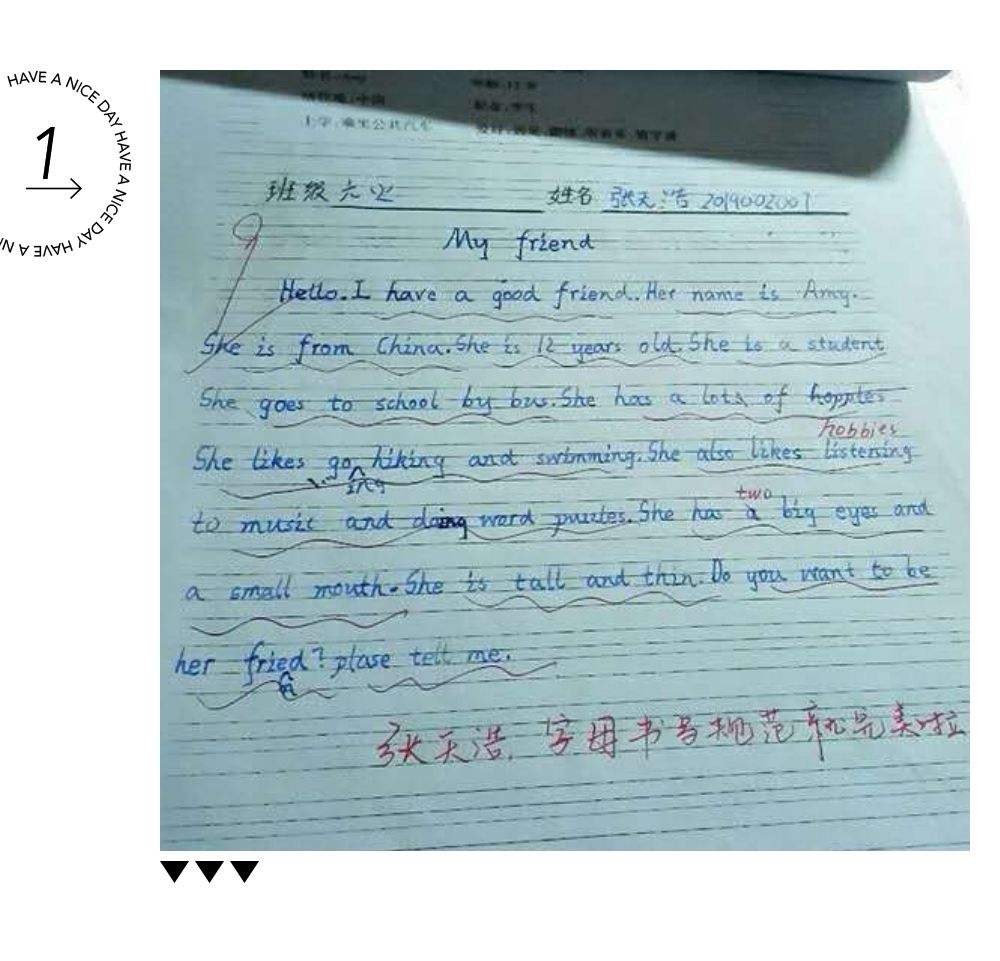 HAVE A NICE DAY HAVE A NICE DAY HAVE A NICE DAY HAVE A NI
1
班级 六
姓名 张天浩 2019002007
My friend
Hello. I have a good friend. Her name is Amy.
She is from China. She is 12 years old. She is a student
She goes to school by bus. She has a lots of hoppies
hobbies
She likes go hiking and swimming. She also likes listening
ing
two
to music and doing word puzzles. She has a big eyes and
a small mouth. She is tall and thin. Do you want to be
her fried? plase tell me.
n
张天浩, 字母书写规范就完美啦